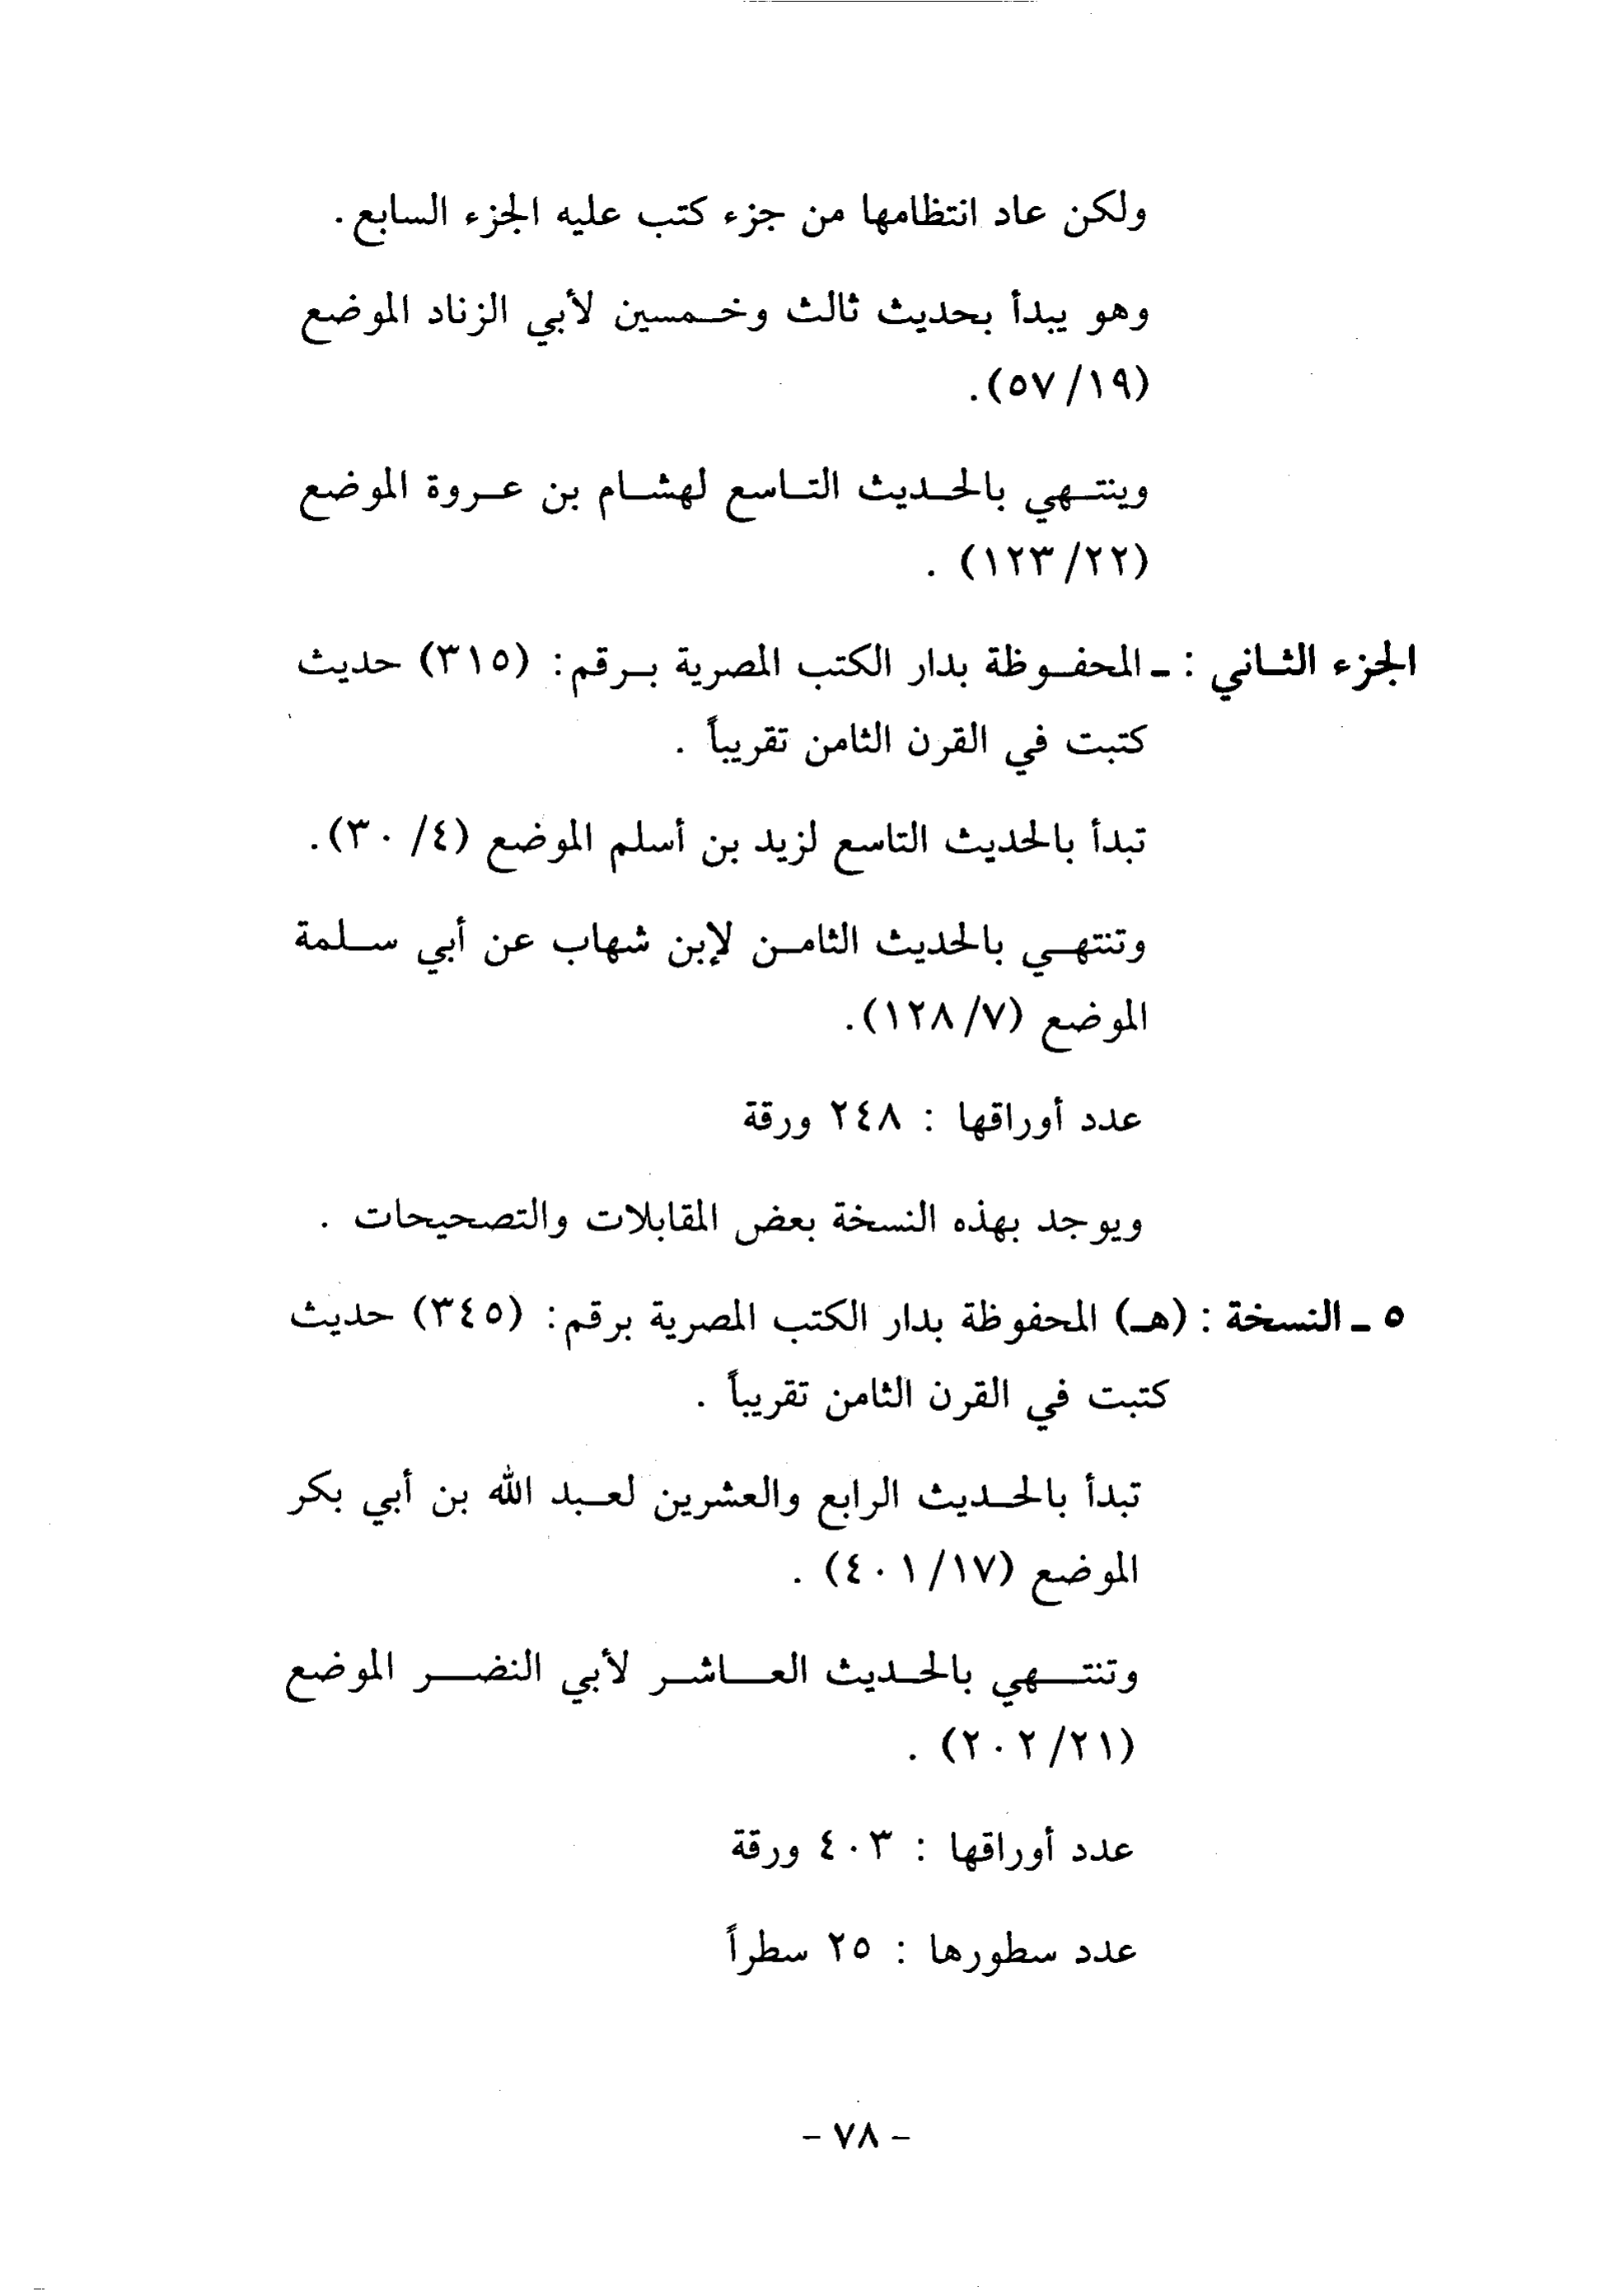 ولكن عاد انتظامها من جزء كتب عليه الجزء السابع.
وهو يبدأ بحديث ثالث وخمسين لأبي الزناد الموضع
(٥٧/١٩).
وينتهي بالحديث التاسع لهشام بن عروة الموضع
(١٢٣/٢٢) .
الجزء الثاني : ـ المحفوظة بدار الكتب المصرية برقم: (٣١٥) حديث
كتبت في القرن الثامن تقريباً .
تبدأ بالحديث التاسع لزيد بن أسلم الموضع (٣٠/٤).
وتنتهي بالحديث الثامن لإبن شهاب عن أبي سلمة
الموضع (١٢٨/٧).
عدد أوراقها : ٢٤٨ ورقة
ويوجد بهذه النسخة بعض المقابلات والتصحيحات .
٥ ـ النسخة : (هـ) المحفوظة بدار الكتب المصرية برقم: (٣٤٥) حديث
كتبت في القرن الثامن تقريباً .
تبدأ بالحديث الرابع والعشرين لعبد الله بن أبي بكر
الموضع (٤٠١/١٧) .
وتنتهي بالحديث العاشر لأبي النضر الموضع
(٢٠٢/٢١) .
عدد أوراقها : ٤٠٣ ورقة
عدد سطورها : ٢٥ سطراً
- ٧٨ -